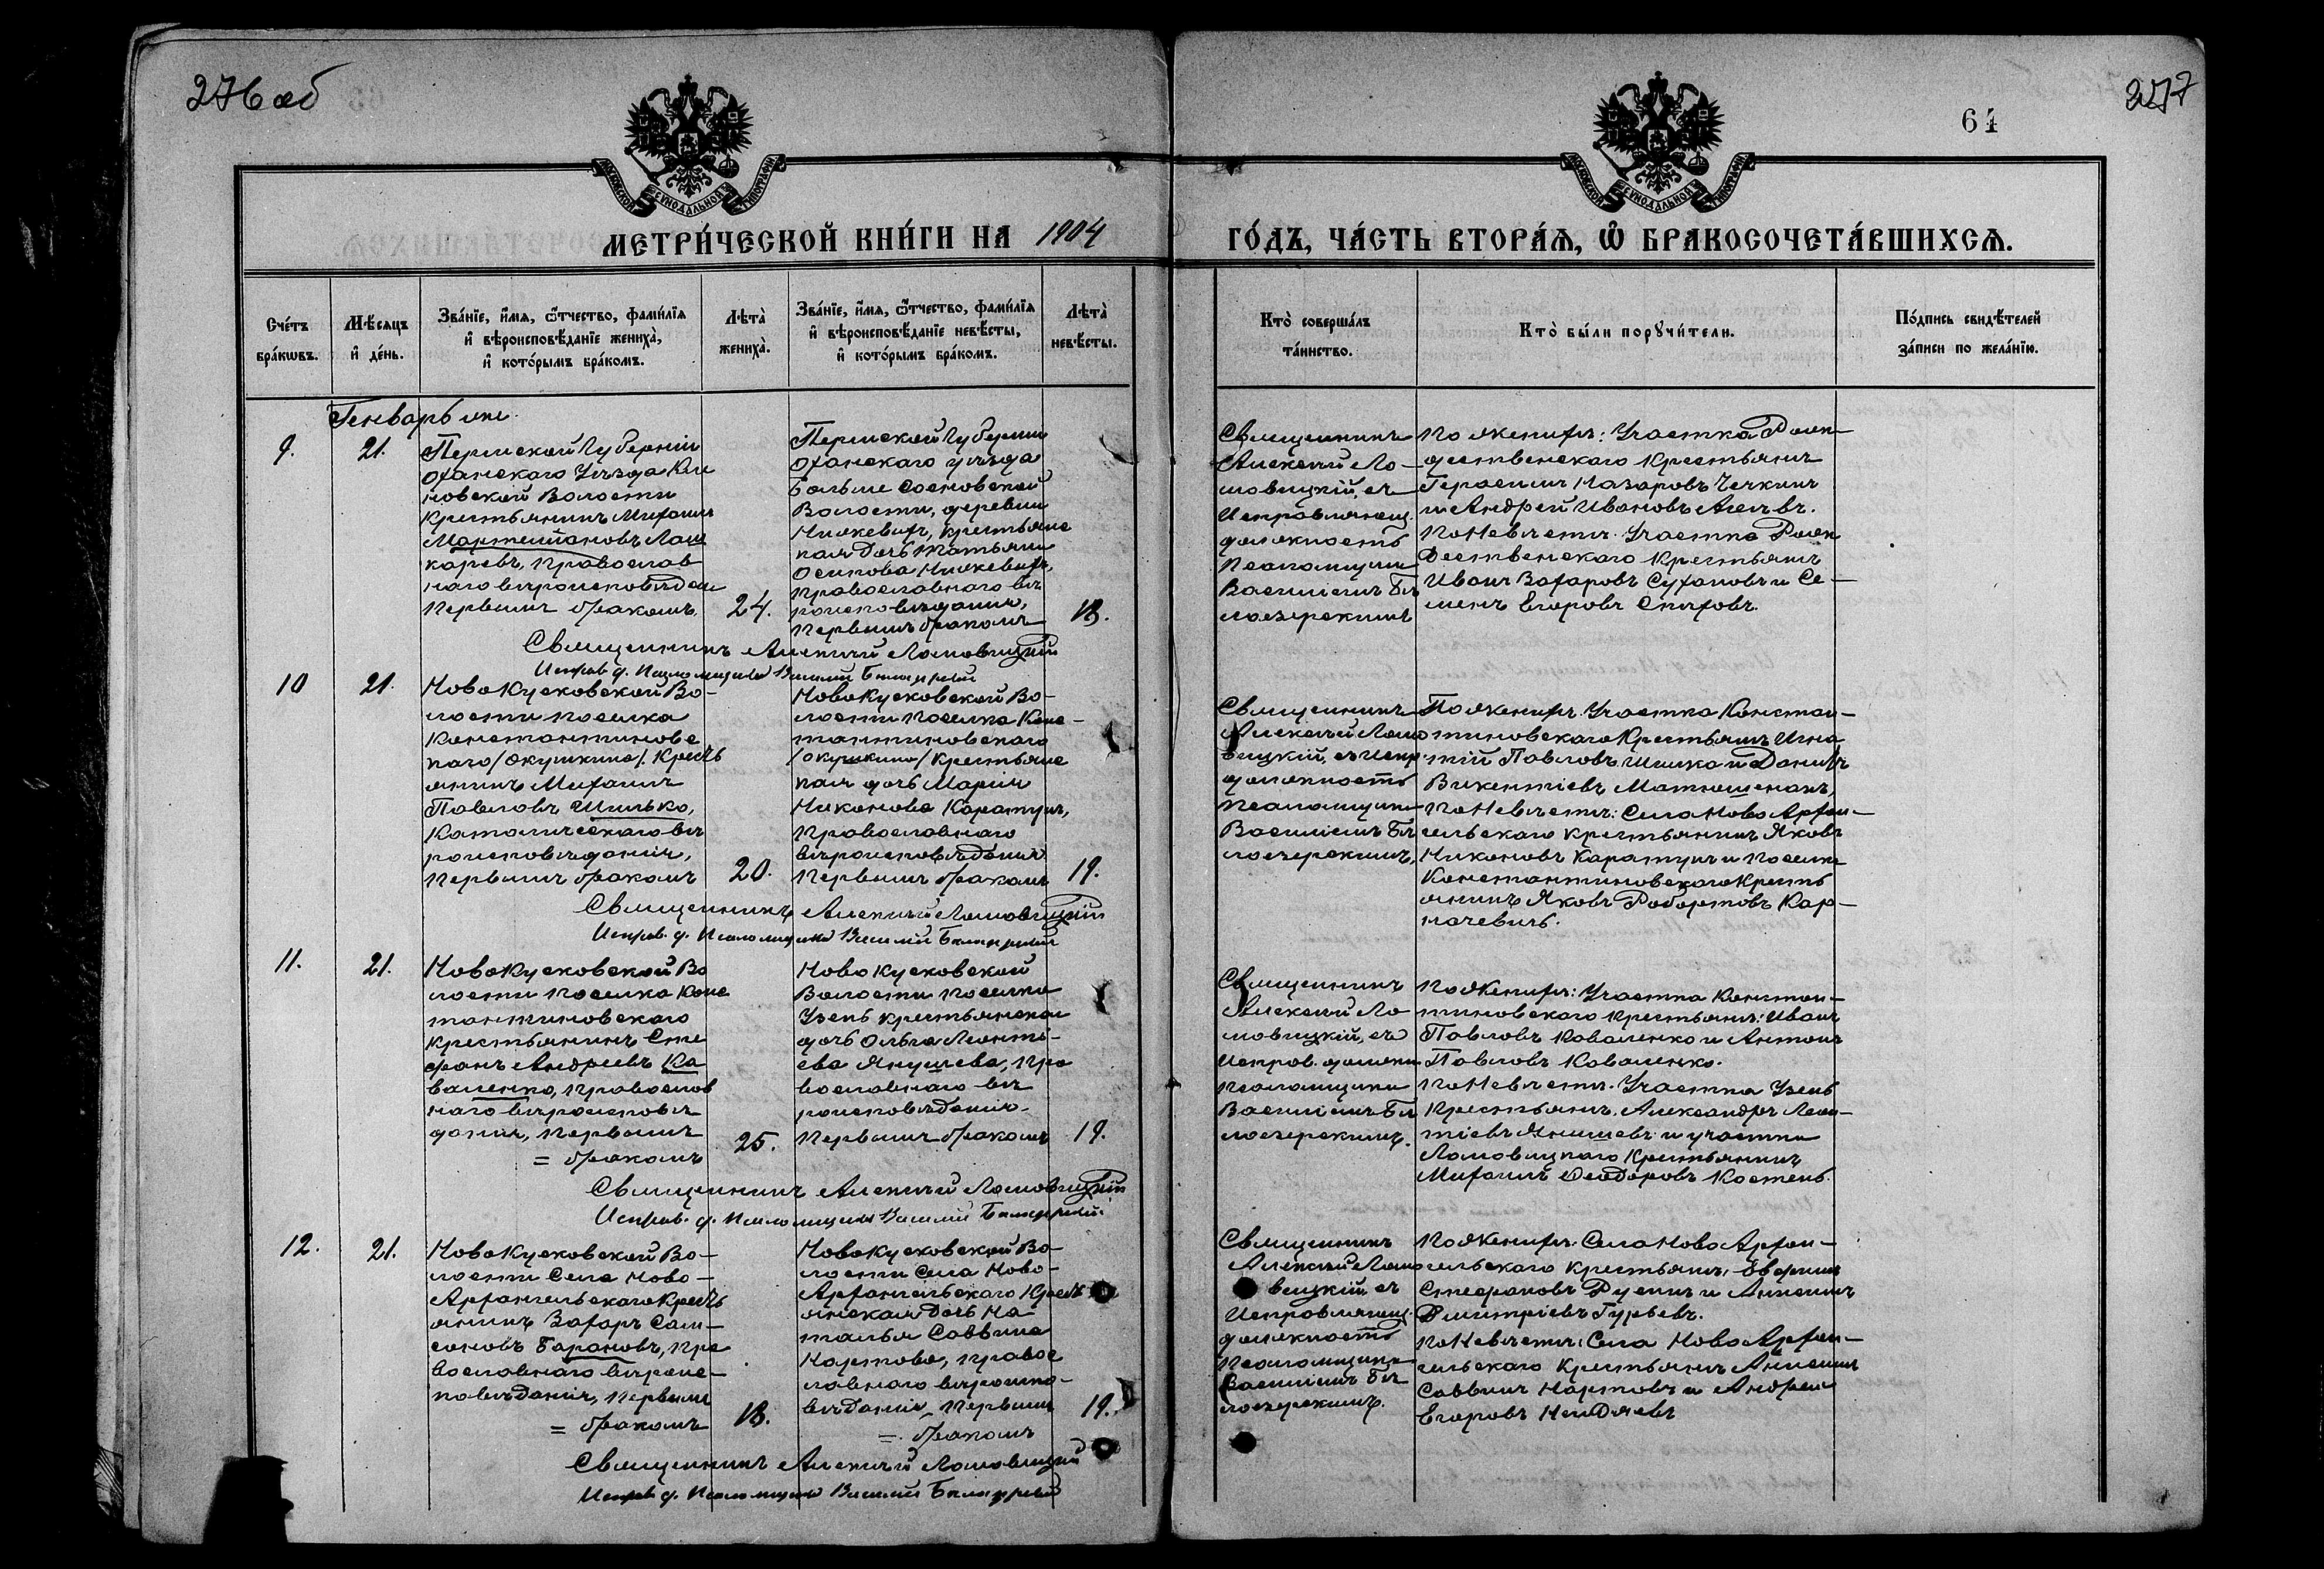 276 об
277
64
МОСКОВСКОЙ СѴНОДАЛЬНОЙ ТИПОГРАФІИ
МОСКОВСКОЙ СѴНОДАЛЬНОЙ ТИПОГРАФІИ
МЕТРИ́ЧЕСКОЙ КНИ́ГИ НА 1904
ГО́ДЪ, ЧА́СТЬ ВТОРА́Ѧ, Ѽ БРАКОСОЧЕТА́ВШИХСѦ.
Сче́тъ
бра́кѡвъ.
Мѣ́сяцъ
и҆ де́нь.
Зва́нїе, и҆́мя, ѻ҆́тчество, фами́лїя
и҆ вѣроисповѣ́данїе жениха̀,
и҆ кото́рымъ бра́комъ.
Лѣта̀
жениха̀.
Зва́нїе, и҆́мя, ѻ҆́тчество, фами́лїя
и҆ вѣроисповѣ́данїе невѣ́сты,
и҆ кото́рымъ бра́комъ.
Лѣта̀
невѣ́сты.
Кто̀ соверша́лъ
та́инство.
Кто̀ бы́ли порꙋчи́тели.
По́дпись свидѣ́телей
за́писи по жела́нїю.
Генварь
9.
21.
Пермской Губерніи
Оханскаго Уѣзда Кли
новской Волости
крестьянинъ Михаилъ
Мартемьяновъ Лош
каревъ, православ
наго вѣроисповѣдан
первымъ бракомъ,
24.
Пермской Губерніи
Оханскаго уѣзда
Больше Сосновской
Волости, деревни
крестьянс
кая дочь Татьяна
Осипова
православнаго вѣ
роисповѣданія,
первымъ бракомъ
18.
Священникъ
Алексій Ло-
мовицкій, съ
Исправляющ.
должность
Псаломщика
Василіемъ Бѣ
лозерскимъ
По женихѣ: Участка Рож-
дественскаго крестьянинъ
Герасимъ Назаровъ Чечкинъ
и Андрей Ивановъ
По невѣстѣ: Участка Рож
дественскаго крестьянинъ
Иванъ Захаровъ Сухановъ и Се-
менъ Егоровъ
Священникъ Алексій Ломовицкій
Исправ. д. Псаломщика Василій Бѣлозерскій
10
21.
Ново Кусковской Во-
лости поселка
Константиновс
каго /Окушкино/. Кресть
янинъ Михаилъ
Павловъ Шилько,
Католическаго вѣ
роисповѣданія,
первымъ бракомъ
20.
Ново Кусковской Во-
лости поселка Конс-
тантиновскаго
/Окушкино/ крестьянс
кая дочь Марія
Никонова Каратунъ,
православнаго
вѣроисповѣданія
первымъ бракомъ
19.
Священникъ
Алексій Ломо
вицкій, съ Испр.
должность
Псаломщика
Василіемъ Бѣ
лозерскимъ,
По женихѣ: Участка Констан-
тиновскаго крестьянинъ Игна
тій Павловъ Шилько и
Викентіевъ
По невѣстѣ: Села Ново Архан-
гельскаго крестьянинъ Яковъ
Никоновъ Каратунъ и поселка
Константиновскаго кресть
янинъ Яковъ Робортовъ Кар-
начевичъ.
Священникъ Алексій Ломовицкій
Исправ. д. Псаломщика Василій Бѣлозерскій
11.
21.
Ново Кусковской Во
лости поселка Конс
тантиновскаго
крестьянинъ Сте
фанъ Андреевъ Ко
валенко, православ
наго вѣроисповѣ
данія, первымъ
= бракомъ
25.
Ново Кусковской
Волости поселка
Узень крестьянская
дочь Ольга Леонть-
ева Янушева, пра
вославнаго вѣ
роисповѣданія.
первымъ бракомъ
19.
Священникъ
Алексій Ло
мовицкій, съ
Исправ. должн
псаломщика
Василіемъ Бѣ
лозерскимъ.
По женихѣ: Участка Констан-
тиновскаго крестьяне: Иванъ
Павловъ Коваленко и Антонъ
Павловъ Коваленко.
По невѣстѣ: Участка Узень
крестьянинъ. Александръ Леон-
тіевъ и участка
Ломовицкаго крестьянинъ
Михаилъ Феодоровъ Костень.
Священникъ Алексій Ломовицкій
Исправ. д. Псаломщика Василій Бѣлозерскій.
12.
21.
Ново Кусковской Во-
лости Села Ново-
Архангельскаго кресть
янинъ Захаръ Сам-
соновъ Барановъ, пра
вославнаго вѣроис-
повѣданія, первымъ
= бракомъ
18.
Ново Кусковской Во-
лости Села Ново-
Архангельскаго Кресть
янская Дочь На
талья Саввина
Карпова, правос
лавнаго вѣроиспо-
вѣданія, первымъ
= бракомъ
19.
Священникъ
Алексій Ломо
вицкій, съ
Исправляющ.
должность
Псаломщика
Василіемъ Бѣ
лозерскимъ.
По женихѣ: Села Ново Архан-
гельскаго крестьяне, Евфимъ
Стефановъ Русинъ и
Дмитріевъ Гурьевъ.
По невѣстѣ: Села Ново Архан-
гельскаго крестьяне
Саввинъ Карповъ и Андрей
Егоровъ
Священникъ Алексій Ломовицкій
Исправ. д. Псаломщика Василій Бѣлозерскій